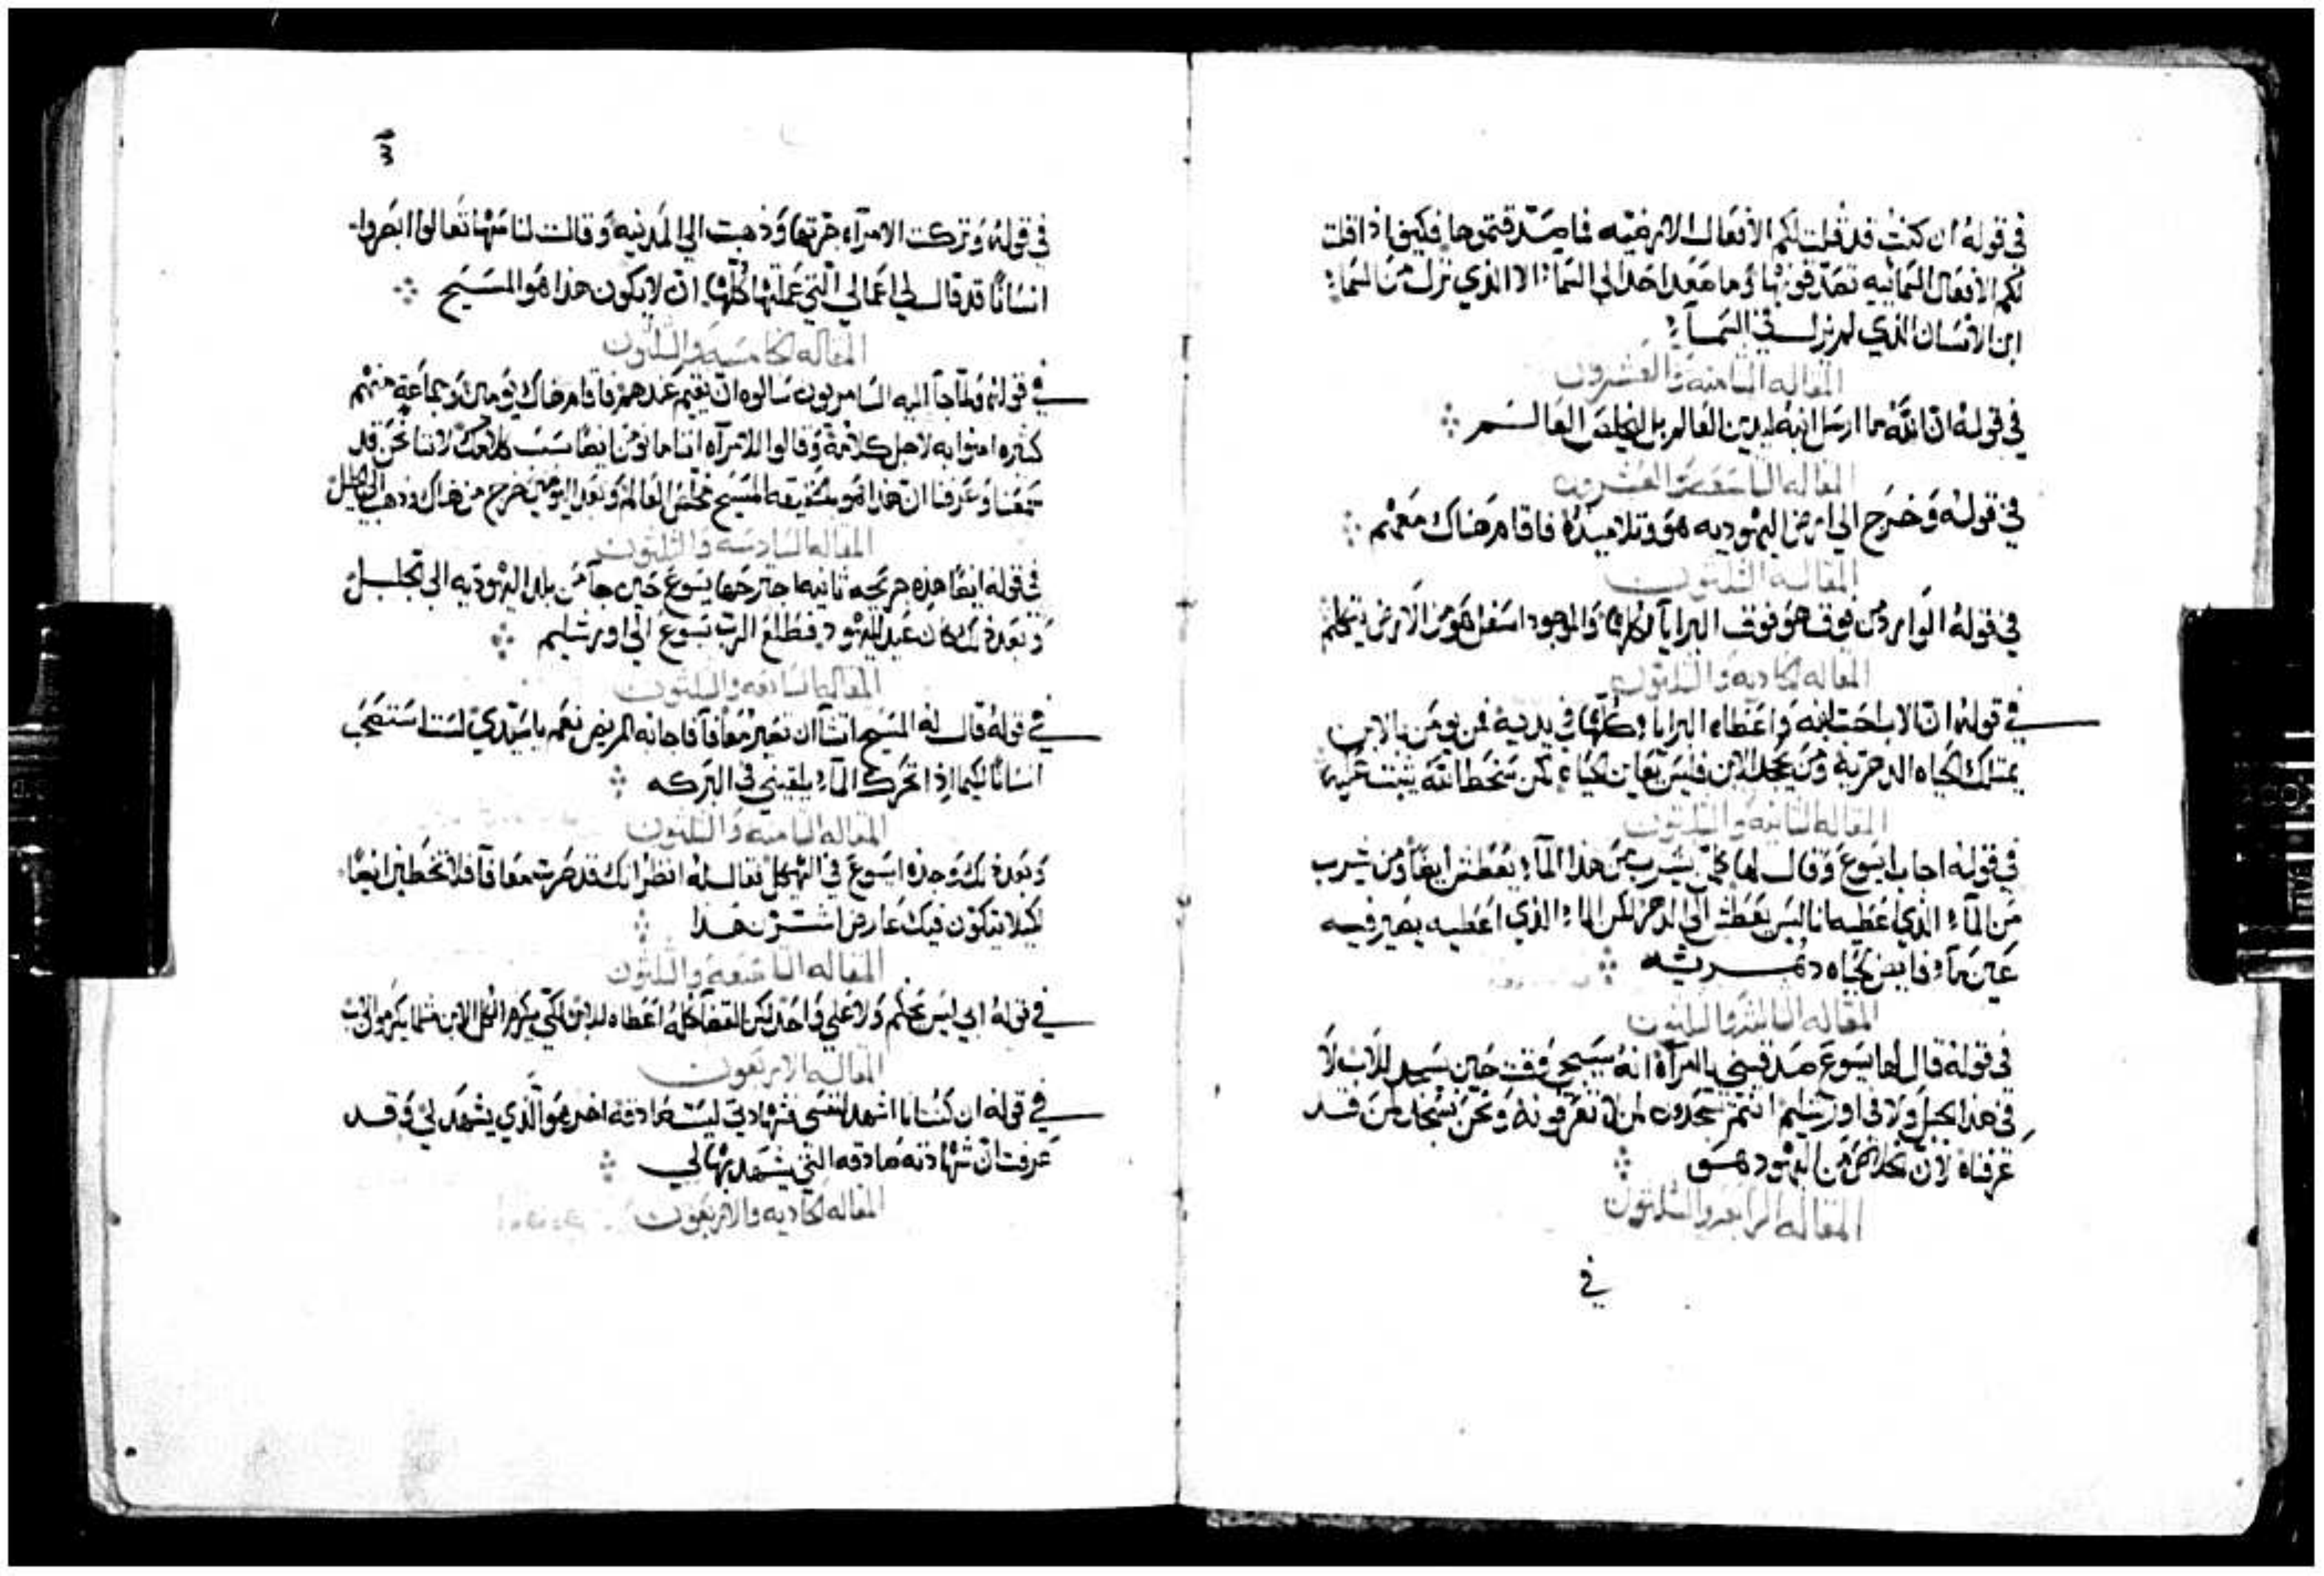 في قوله ان كنت قد قلت لكم الافعال الارضيه فما صدقتموها فكيف اذا قلت
لكم الافعال السمائيه تصدقونها وما صعد احد الى السما الا الذي نزل من السما
ابن الانسان الذي لم يزل في السمآ
المقاله الثامنه والعشرون
في قوله ان الله ما ارسل ابنه ليدين العالم بل ليخلص العالم
المقاله التاسعه والعشرون
في قوله وخرج الى ارض اليهوديه هو وتلاميذه فاقام هناك معهم
المقاله الثلثون
في قوله الوارد من فوق هو فوق البرايا كلها والموجود اسفل هو من الارض يتكلم
المقاله الحاديه والثلثون
في قوله ان الاب احب ابنه واعطاه البرايا كلها في يديه فمن يومن بالابن
يمتلك الحياه الدهرية ومن يجحد الابن فليس يعاين الحياه لكن سخط الله يثبت عليه
المقاله الثانيه والثلثون
في قوله اجاب ايسوع وقال لها كلمن يشرب من هذا المآء يعطش ايضًا ومن شرب
من المآء الذي اعطيه انا ليس يعطش الى الدهر لكن المآء الذي اعطيه يصير فيه
عين مآء فايض لحياه دهريه
المقاله الثالثه والثلثون
في قوله قال لها يسوع صدقيني يا امراة انه سيجي وقت حين يسجد للاب لا
في هذا الجبل ولا في اورشليم انتم تسجدون لمن لا تعرفونه ونحن نسجد لمن قد
عرفناه لان الخلاص من اليهود هو
المقاله الرابعه والثلثون
في
في قوله وتركت الامرآه جرتها وذهبت الى المدنيه وقالت لناسها تعالوا ابصروا
انسانًا قد قال لي اعمالي التي عملتها كلها ان لا يكون هذا هو المسيح
المقاله الخامسه والثلثون
في قوله ولما جآ اليه السامريون سالوه ان يقيم عندهم فاقام هناك يومين وجماعة منهم
كثيره امنوا به لاجل كلامه وقالوا للامرآه اننا ما نومن ايضًا بسبب كلامك لاننا نحن قد
سمعنا وعرفنا ان هذا هو بالحقيقه المسيح مخلص العالم وبعد اليومين خرج من هناك وذهب الى الجليل
المقاله السادسه والثلثون
في قوله ايضًا هذه جريحه ثانيه اجترحها يسوع حين جآ من بلد اليهوديه الى الجليل
وبعد ذلك كان عيد لليهود فطلع الرب يسوع الى اورشليم
المقاله السابعه والثلثون
في قوله قال له المسيح اتشآ ان تصير معافآ فاجابه المريض نعم يا سيدي لست استصحب
انسانًا ليكيما اذا تحرك المآء يلقيني في البركه
المقاله الثامنه والثلثون
وبعد ذلك وجده ايسوع في الهيكل فقال له انظر انك قد صرت معافآ فلا تخطين ايضًا
لكيلا يتكون فيك عارض اشر من هذا
المقاله التاسعه والثلثون
في قوله ابي ليس يحكم ولا على واحد لكن القضآ كله اعطاه للابن لكي يكرم الكل الابن مثلما يكرمو الاب
المقاله الاربعون
في قوله ان كنت انا اشهد لنفسي فشهادتي ليست صادقة اخر هو الذي يشهد لي وقد
عرفت ان شهادته صادقه التي يشهد بها لي
المقاله الحاديه والاربعون